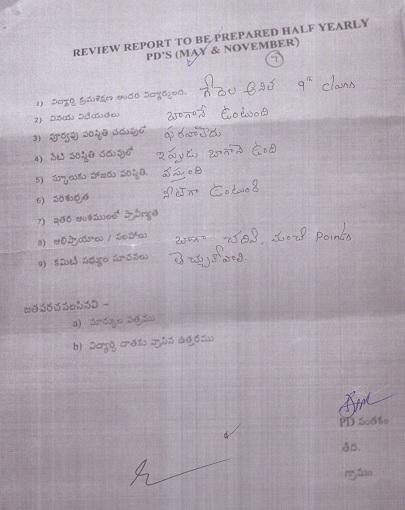 REVIEW REPORT TO BE PREPARED HALF YEARLY
PD'S (MAY & NOVEMBER)
7
1) విద్యార్థి క్రమశిక్షణ అందరి విద్యార్థులది. గేదెల 9th class
2) వినయ విధేయతలు బాగానే ఉంటుంది
3) పూర్వపు పరిస్థితి చదువులో పరవాలేదు
4) నేటి పరిస్థితి చదువులో ఇప్పుడు బాగానే ఉంది
5) స్కూలుకు హాజరు పరిస్థితి. వస్తుంది
6) పరిశుభ్రత నీట్‌గా ఉంటుంది
7) ఇతర అంశములలో ప్రావీణ్యత
8) అభిప్రాయాలు / సలహాలు బాగా చదివి, మంచి Points
9) కమిటీ సభ్యుల సూచనలు తెచ్చుకోవాలి.
జతపరచవలసినవి -
a) మార్కుల పత్రము
b) విద్యార్థి దాతకు వ్రాసిన ఉత్తరము
PD సంతకం
తేది.
గ్రామం